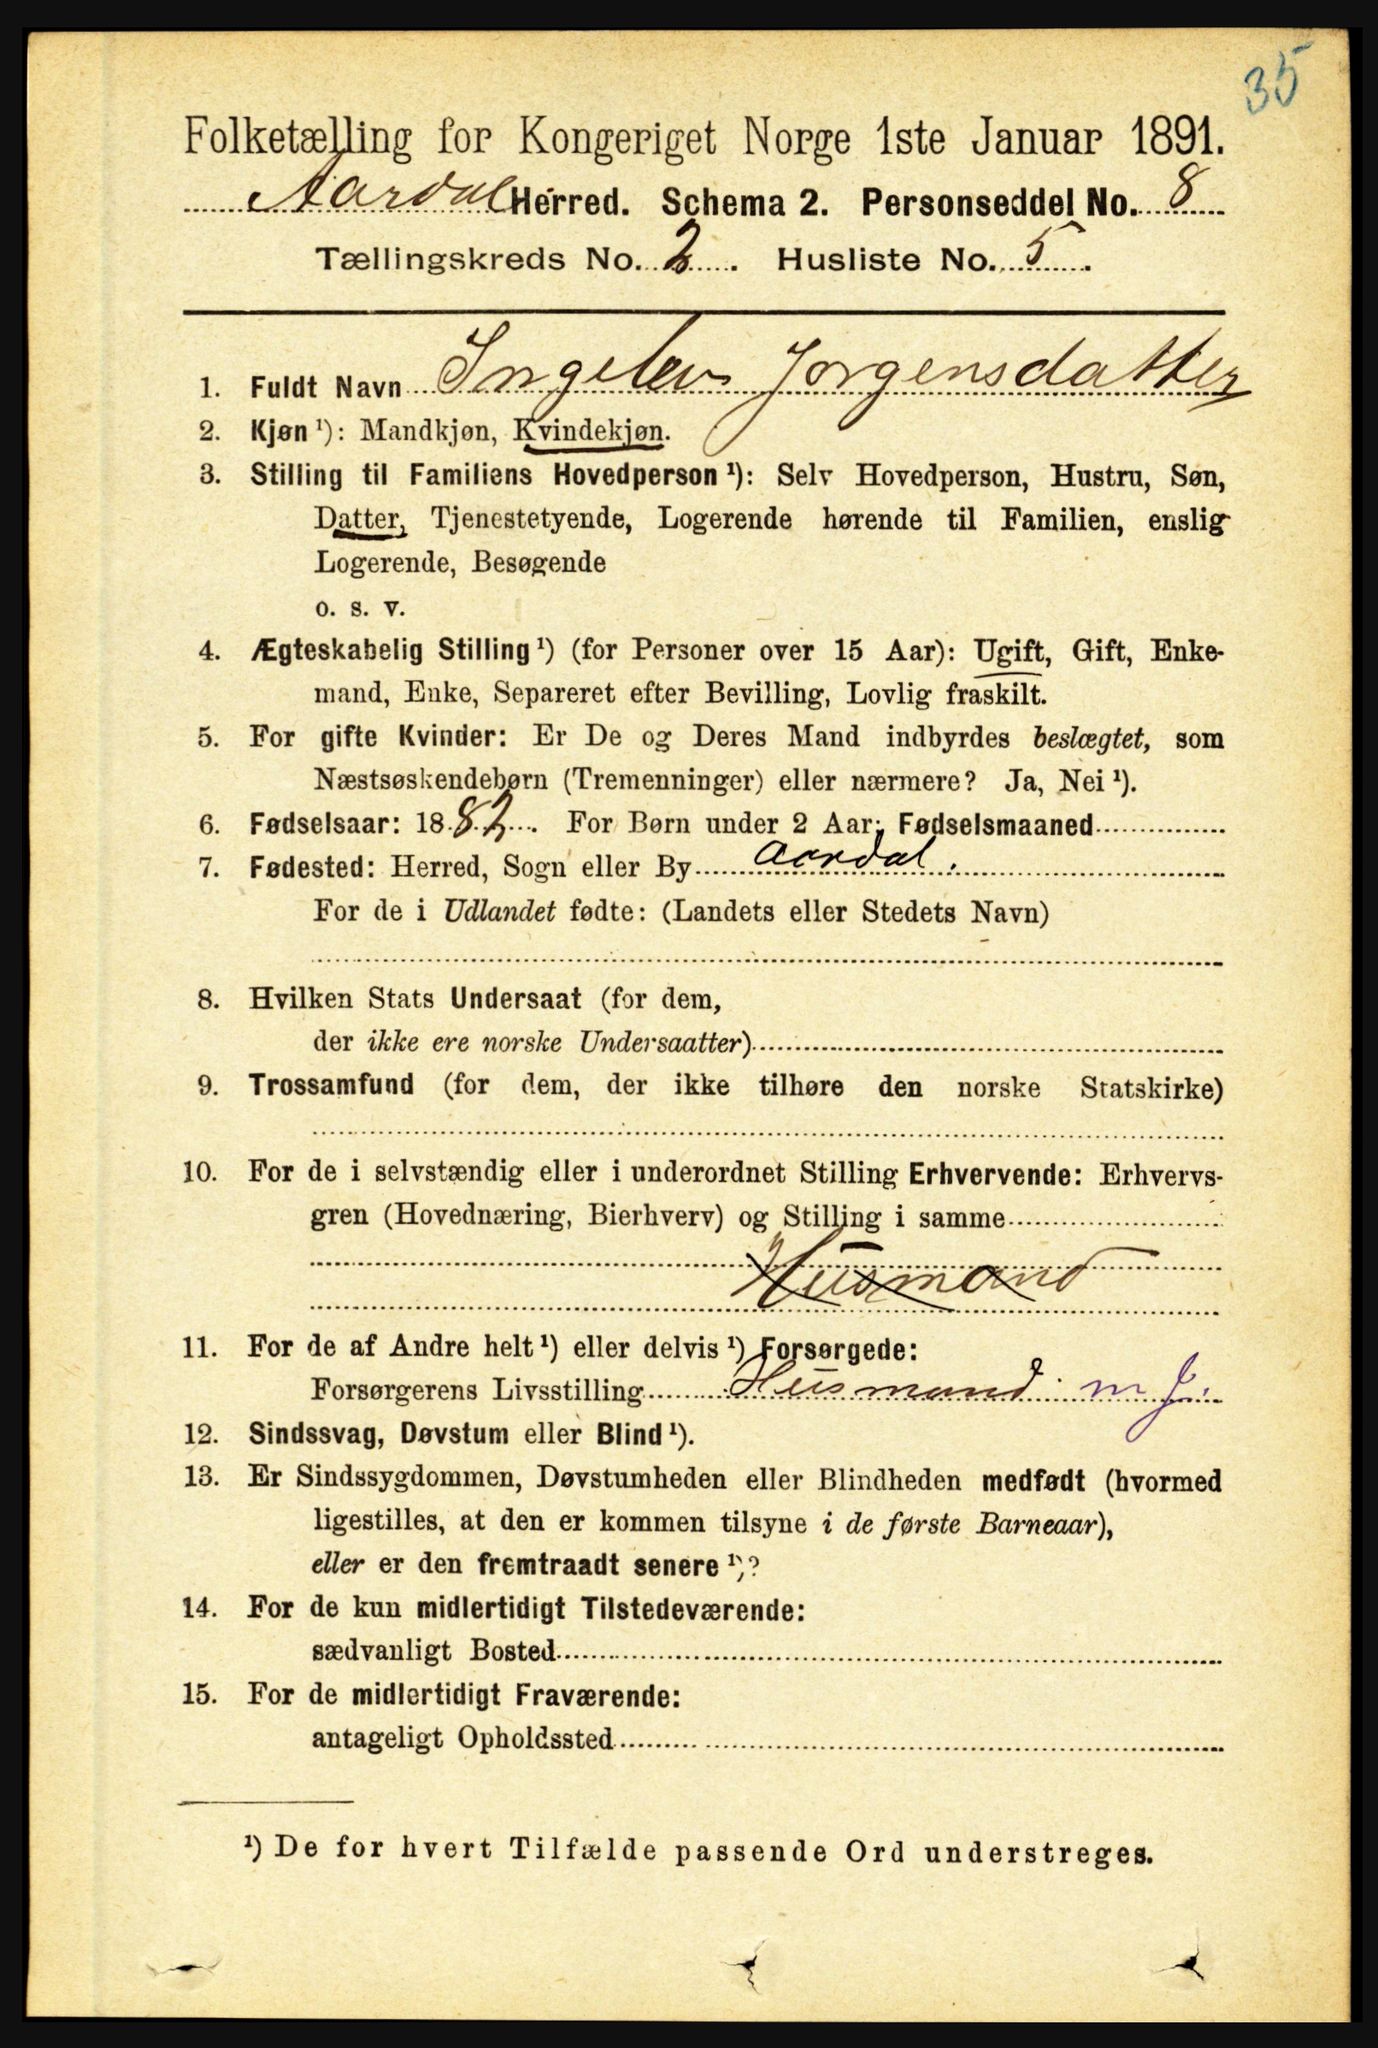 35
Folketælling for Kongeriget Norge 1ste Januar 1891.
Aardal Herred. Schema 2. Personseddel No. 8
Tællingskreds No. 2. Husliste No. 5.
1. Fuldt Navn Ingelev Jorgensdatter
2. Kjøn ¹): Mandkjøn, Kvindekjøn.
3. Stilling til Familiens Hovedperson ¹): Selv Hovedperson, Hustru, Søn,
Datter, Tjenestetyende, Logerende hørende til Familien, enslig
Logerende, Besøgende
o. s. v.
4. Ægteskabelig Stilling ¹) (for Personer over 15 Aar): Ugift, Gift, Enke-
mand, Enke, Separeret efter Bevilling, Lovlig fraskilt.
5. For gifte Kvinder: Er De og Deres Mand indbyrdes beslægtet, som
Næstsøskendebørn (Tremenninger) eller nærmere? Ja, Nei ¹).
6. Fødselsaar: 1882. For Børn under 2 Aar: Fødselsmaaned
7. Fødested: Herred, Sogn eller By Aardal.
For de i Udlandet fødte: (Landets eller Stedets Navn)
8. Hvilken Stats Undersaat (for dem,
der ikke ere norske Undersaatter)
9. Trossamfund (for dem, der ikke tilhøre den norske Statskirke)
10. For de i selvstændig eller i underordnet Stilling Erhvervende: Erhvervs-
gren (Hovednæring, Bierhverv) og Stilling i samme
Husmand
11. For de af Andre helt ¹) eller delvis ¹) Forsørgede:
Forsørgerens Livsstilling Husmand m J.
12. Sindssvag, Døvstum eller Blind ¹).
13. Er Sindssygdommen, Døvstumheden eller Blindheden medfødt (hvormed
ligestilles, at den er kommen tilsyne i de første Barneaar),
eller er den fremtraadt senere ¹)?
14. For de kun midlertidigt Tilstedeværende:
sædvanligt Bosted
15. For de midlertidigt Fraværende:
antageligt Opholdssted
¹) De for hvert Tilfælde passende Ord understreges.